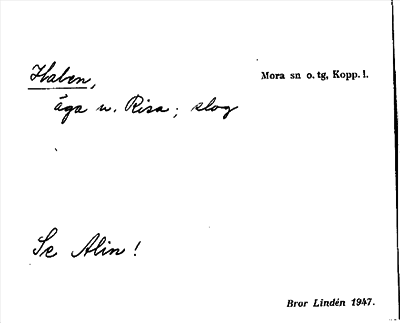 Haben,
Mora sn o. tg, Kopp. l.
äga u. Risa; slog
Se Alin!
Bror Lindén 1947.